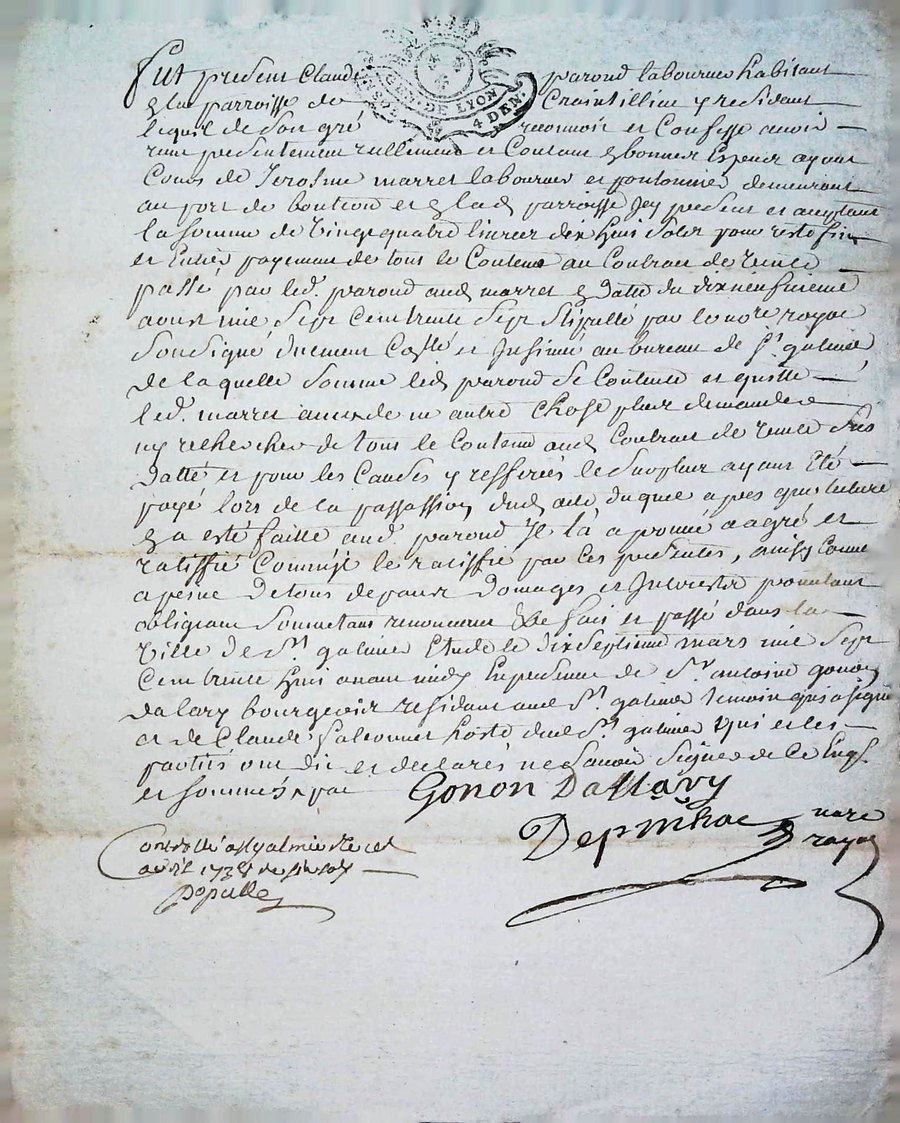 GEN. DE LYON
4 DEN.
Fut present Claude parond laboureur habitant
en la parroisse de Craintillieu y residant
lequel de son gré reconnoit et Confesse avoir
receu presentement reellement et Contant en bonnes Especes ayant
Cours de Jerosme marret laboureur et pontonnier demeurant
au port de bouteon et en lad parroisse Icy present et acceptant
la somme de vingt quatre livres dix huit solds pour reste fin
et Entier payement de tout le Contenu au Contrat de vente
passé par led. parond aud marret en datte du dix neufvieme
aoust mil sept Cent trente sept stipullé par le no.re royal
soussigné duement Collé et Insinué au bureau de St galmier
de laquelle somme led parond se Contente et quitte
led. marret avec de ne autre chose plus demander
ny rechercher de tout le Contenu aud Contrat de vente sus
datté et pour les Causes y refferées le surplus ayant été
payé lors de la passassion dud acte duquel apres que lecture
en a esté faitte aud. parond Il l'a aprouvé agréé et
ratiffié Comme Il le ratiffie par Ces presentes, ainsy Conve
a peine de tous depans domages et Interests promettant
obligeant soumettant renonceant &c fait et passé dans la
ville de St galmier Etude le dix septieme mars mil sept
Cent trente huit avant midy En presence de Sr. antoine gonon
dalary bourgeois residant aud St. galmier temoin qui a signé
et de Claude hoste dud St. galmier qui et les
parties ont dit et declarés ne scavoir signer de Ce Enq.
et sommés par
Gonon Dallary
nore
royal
Controllé a St galmier le
avril 1738